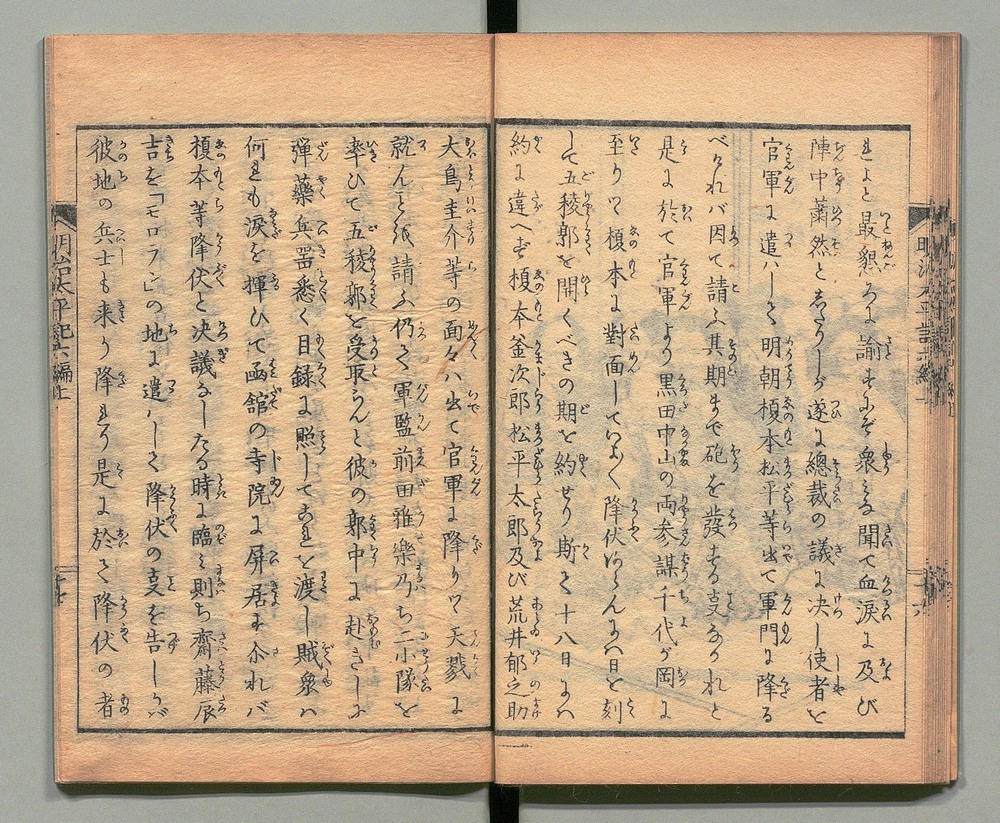 れよと最懇ろに諭すにぞ衆みな聞て血涙に及び
陣中蕭然となりしが遂に總裁の議に决し使者を
官軍に遣ハして明朝榎本松平等出て軍門に降る
べけれバ因て請ふ其期まで砲を發する支なかれと
是に於て官軍より黒田中山の両参謀千代ケ岡に
至りて榎本に對面していよく降伏ならんにハ日を刻
して五稜郭を開くべきの期を約せり斯て十八日にハ
約に違へず榎本釜次郎松平太郎及び荒井郁之助
大鳥圭介等の面々ハ出て官軍に降りて天戮に
就んと紙請ふ仍て軍監前田雅樂乃ち二小隊を
率ひて五稜郭を受取らんと彼の郭中に赴きしに
弾藥兵噐悉く目録に照してこれを渡し賊衆ハ
何れも涙を揮ひて函舘の寺院に屏居す尓れバ
榎本等降伏と决議なしたる時に臨ミ則ち齋藤辰
吉を「モロラン」の地に遣ハして降伏の支を告しかバ
彼地の兵士も来り降れり是に於て降伏の者
明治太平記六編上